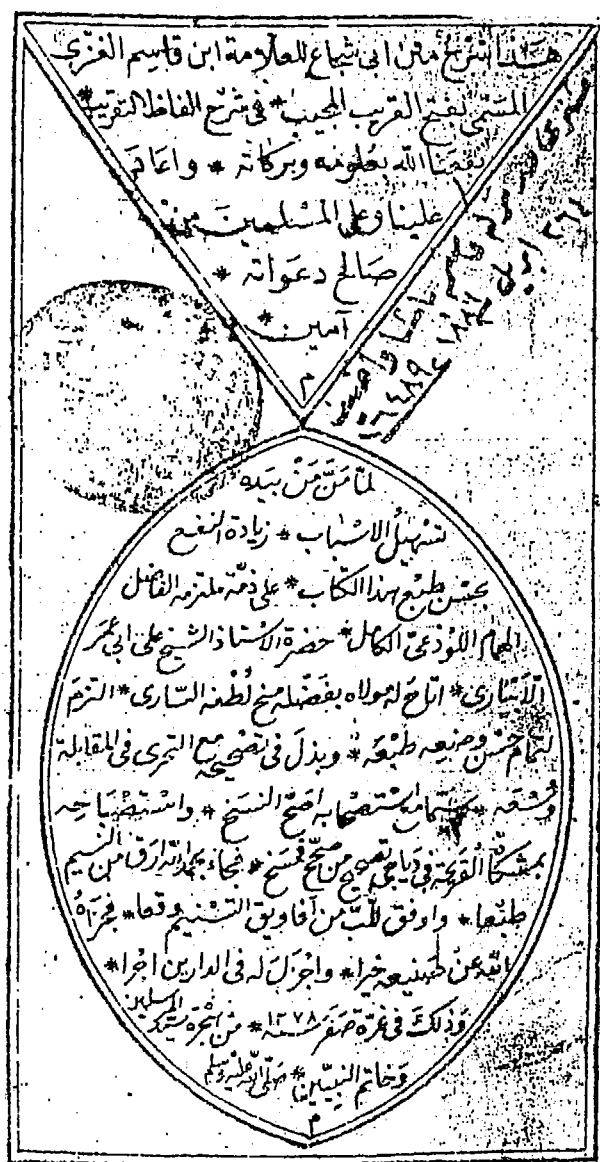 هذا شرح متن ابى شجاع للعلامة ابن قاسم الغزى
المسمى بفتح القريب المجيب * فى شرح الفاظ التقريب *
نفعنا الله بعلومه وبركاته * واعاد
علينا وعلى المسلمين من
صالح دعواته *
آمين *
م
لما من من بيده
تسهيل الاسباب * زيادة النفع
بحسن طبع هذا الكتاب * على ذمة ملتزمه الفاضل
الهمام اللوذعى الكامل * حضرة الاستاذ الشيخ على ابى عمر
الابيارى * اتاح له مولاه بفضله منح لطفه السارى * التزم
حسن وضعه طبعه * وبذل فى تصحيحه مع التحرى فى المقابلة
وسعه * باستصحابه اصح النسخ * واستصباحه
بمشكاة القريحة فى دياجى من صحح فنسخ * فجاء بحمد الله ارق من النسيم
طبعا * واوفق للب من افاويق التسنيم وقعا * فجزاه
الله عن صنيعه خيرا * واجزل له فى الدارين اجرا *
وذلك فى غرة صفر سنة ١٢٧٨ * من هجرة سيد المرسلين
وخاتم النبيين * صلى الله عليه وسلم
م
٢٦٤ ابريل ١٨٨٢